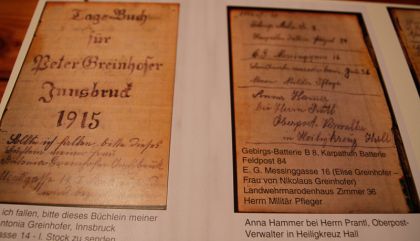 Tage-Buch
für
Peter Greinhofer
Innsbruck
1915
Sollte ich fallen, bitte dieses
Antonia Greinhofer Innsbruck
ich fallen, bitte dieses Büchlein meiner
ntonia Greinhofer, Innsbruck
asse 14 - I. Stock zu senden
Gebirgs-
Karpathen Feldpost 84
E. G. Messinggasse 16
Herr Militär Pfleger
Anna Hammer
bei Herrn Prantl
Oberpost-Verwalter
in Heiligkreuz Hall
Gebirgs-Batterie B 8, Karpathen Batterie
Feldpost 84
E. G. Messinggasse 16 (Elise Greinhofer –
Frau von Nikolaus Greinhofer)
Landwehrmarodenhaus Zimmer 36
Herr Militär Pfleger
Anna Hammer bei Herrn Prantl, Oberpost-
Verwalter in Heiligkreuz Hall